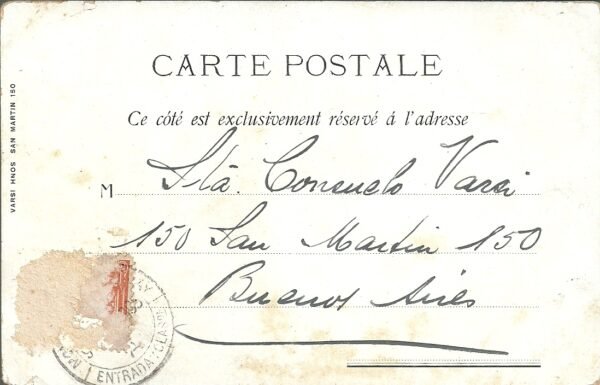 CARTE POSTALE
Ce côté est exclusivement réservé á l'adresse
M Sta. Consuelo Varsi
150 San Martin 150
Buenos Aires
VARSI HNOS SAN MARTIN 150
ENTRADA